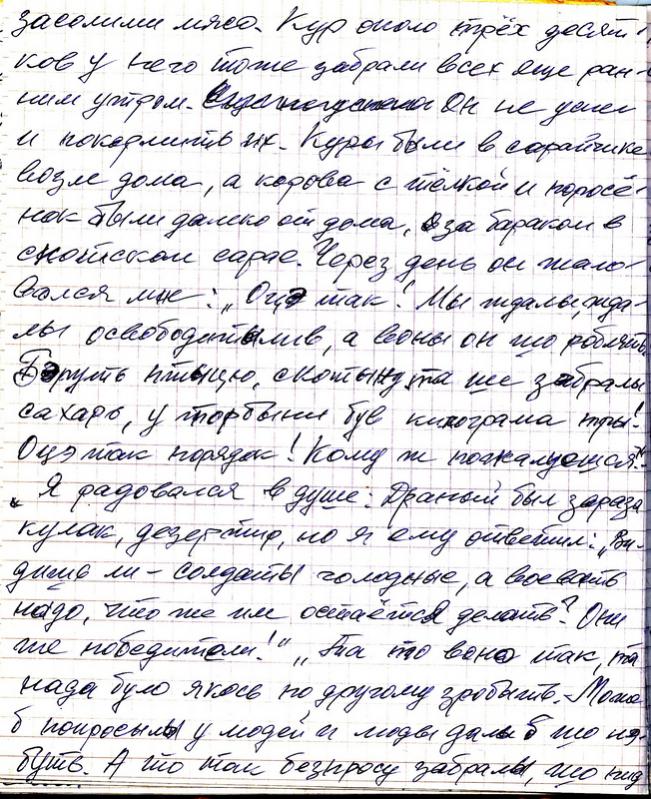 засолили мясо. Кур около трёх десят-
ков у него тоже забрали всех еще ран-
ним утром. Он не успел
и покормить их. Куры были в сарайчике
возле дома, а корова с тёлкой и поросё-
нок были далеко от дома, за бараком в
скотском сарае. Через день он жало-
вался мне: „Оцэ так! Мы ждалы, жда-
лы освободитылив, а воны он шо роблять.
Бэруть птыцю, скотыну, та ще забралы
сахарь, у торбыни був килограма тры!
Оцэ так порядок! Кому ж пожалуешся?"
Я радовался в душе: Драный был зараза
кулак, дезертир, но я ему ответил: „Ви-
дишь ли – солдаты голодные, а воевать
надо, что же им остаётся делать? Они
же победители!" „Та то воно так, та
нада було якось по другому зробыть. – Може
б попросылы у людей и люды далы б шо ня-
буть. А то так безпросу забралы, шо пид